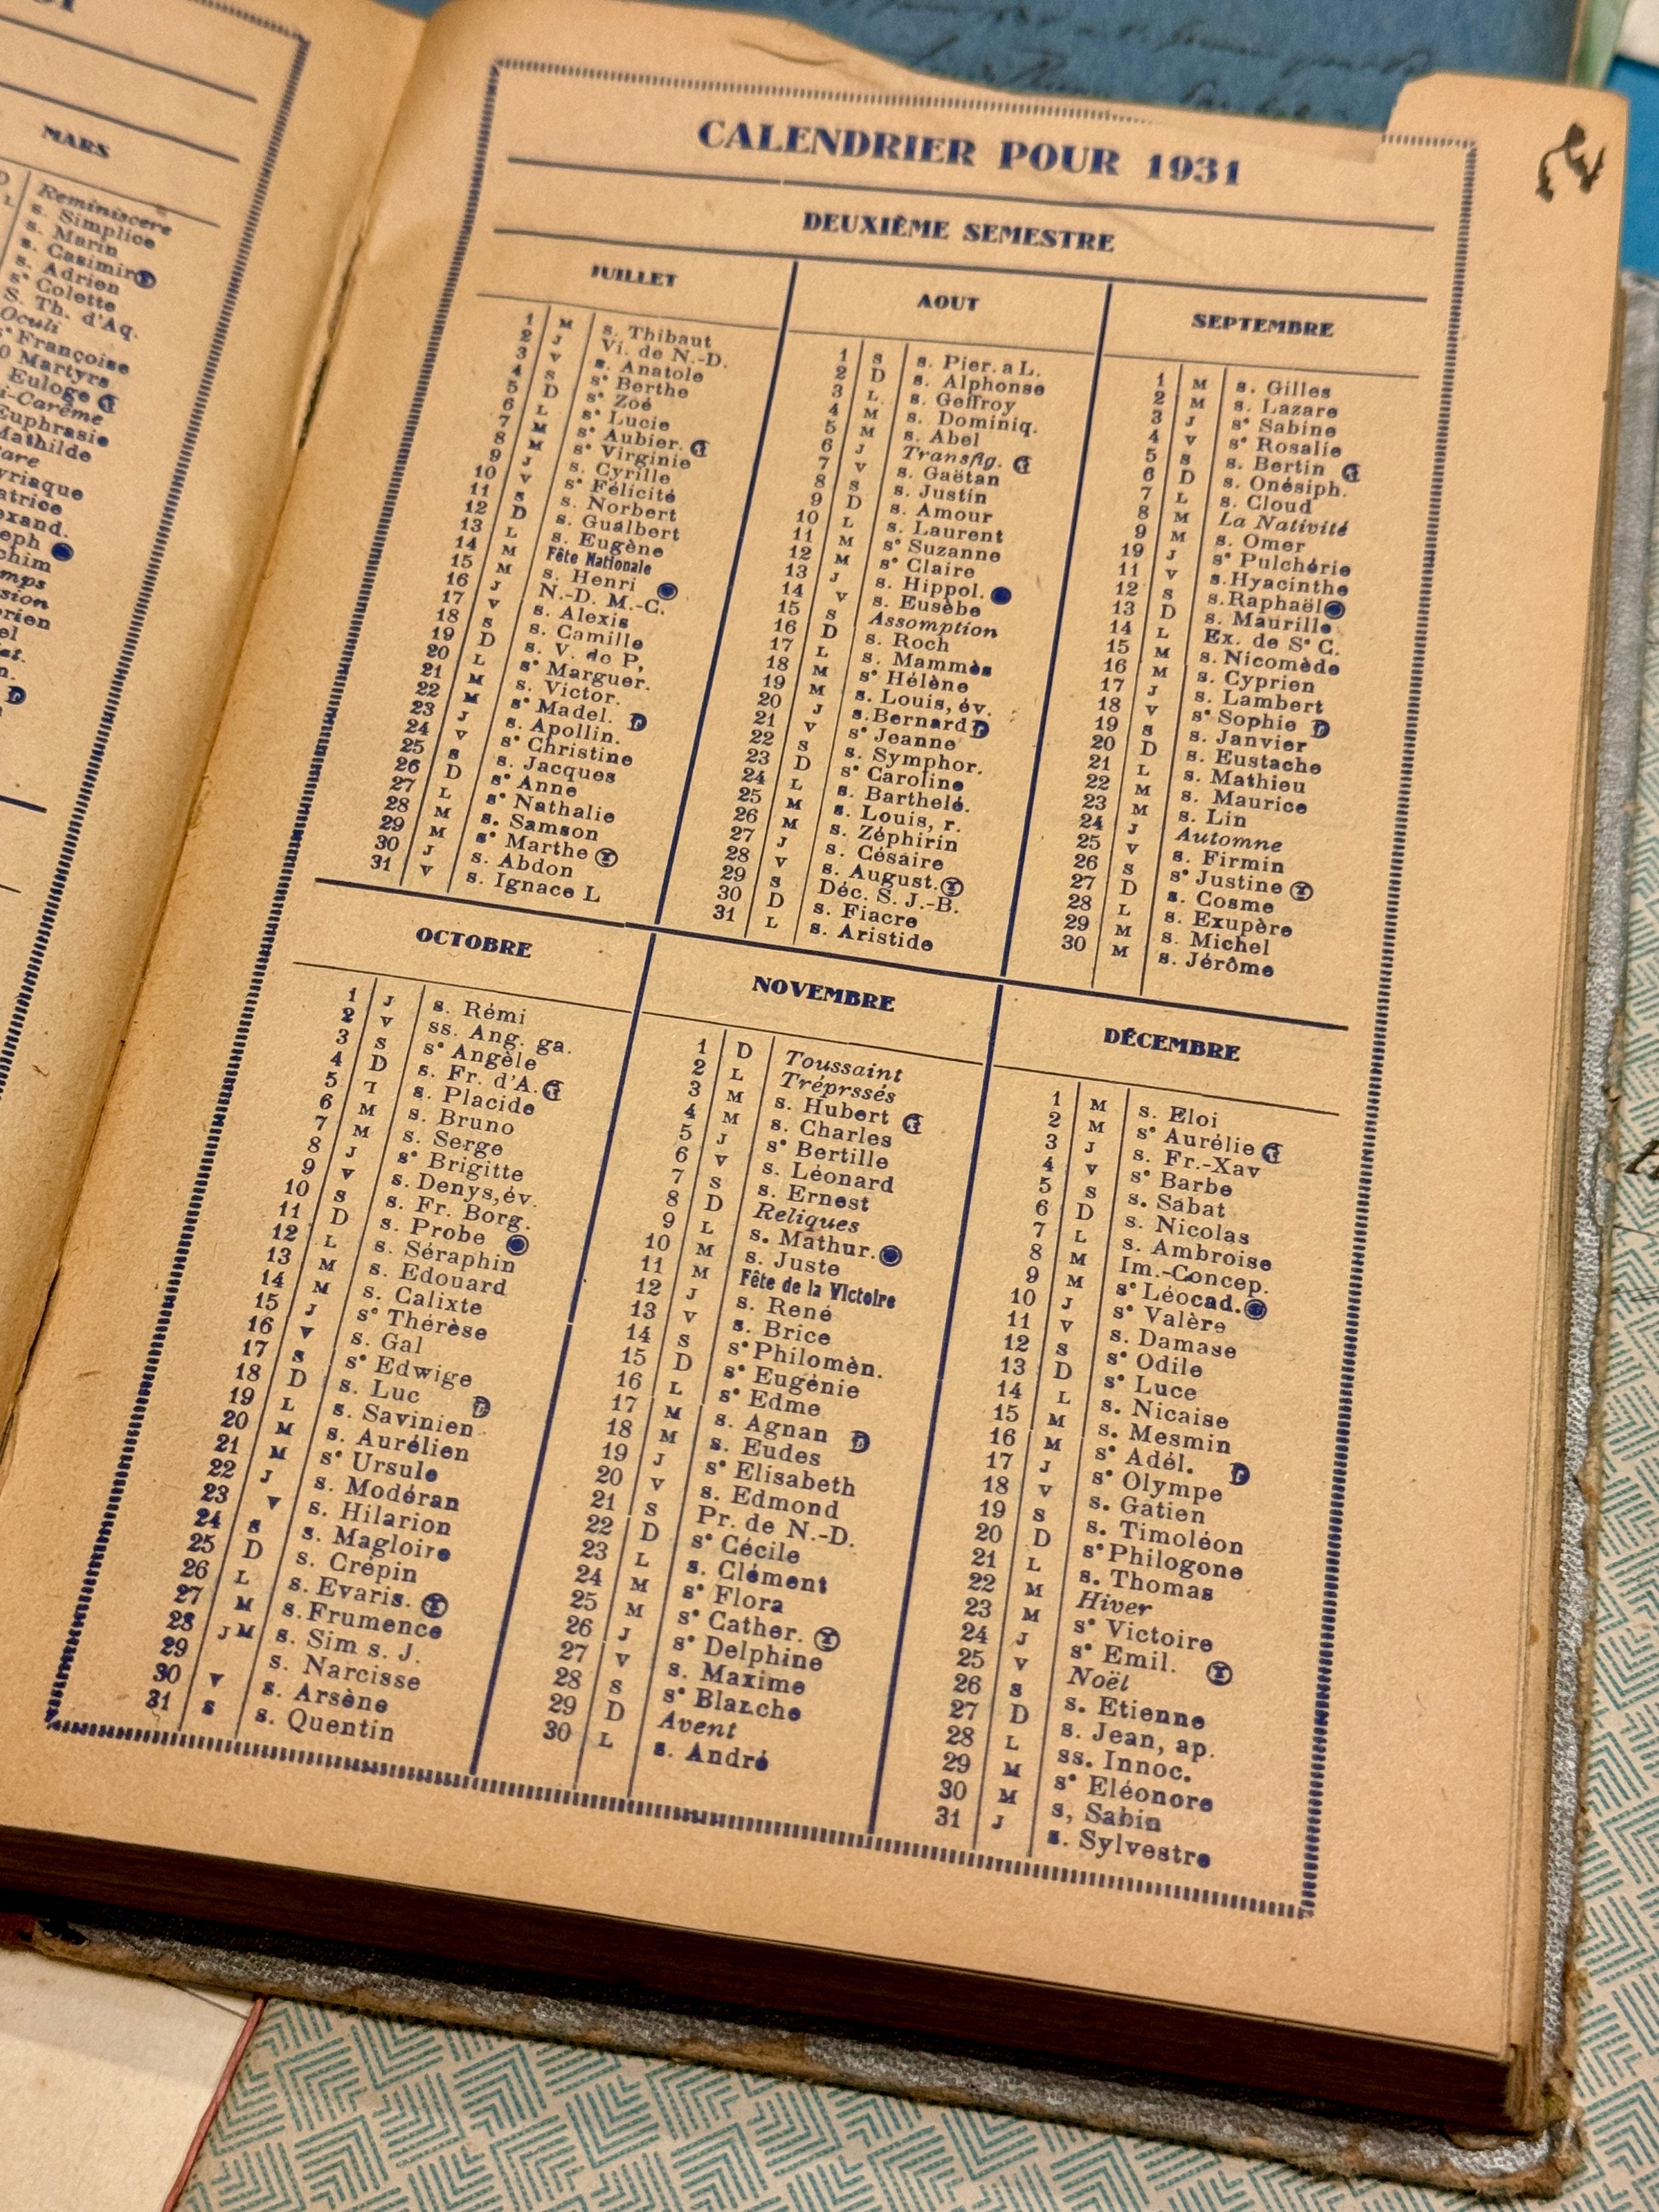 MARS
Reminiscere
s. Simplice
s. Marin
s. Casimir
s. Adrien
sᵉ Colette
S. Th. d'Aq.
Oculi
sᵉ Françoise
Martyrs
Euloge
i-Carême
Euphrasie
Mathilde
CALENDRIER POUR 1931
DEUXIÈME SEMESTRE
JUILLET
1 M s. Thibaut
2 J Vi. de N.-D.
3 V s. Anatole
4 S sᵉ Berthe
5 D sᵉ Zoé
6 L sᵉ Lucie
7 M sᵉ Aubier.
8 M sᵉ Virginie
9 J s. Cyrille
10 V sᵉ Félicité
11 S s. Norbert
12 D s. Gualbert
13 L s. Eugène
14 M Fête Nationale
15 M s. Henri
16 J N.-D. M.-C.
17 V s. Alexis
18 S s. Camille
19 D s. V. de P.
20 L sᵉ Marguer.
21 M s. Victor.
22 M sᵉ Madel.
23 J s. Apollin.
24 V sᵉ Christine
25 S s. Jacques
26 D sᵉ Anne
27 L sᵉ Nathalie
28 M s. Samson
29 M sᵉ Marthe
30 J s. Abdon
31 V s. Ignace L
AOUT
1 S s. Pier. a L.
2 D s. Alphonse
3 L s. Geffroy
4 M s. Dominiq.
5 M s. Abel
6 J Transfig.
7 V s. Gaëtan
8 S s. Justin
9 D s. Amour
10 L s. Laurent
11 M sᵉ Suzanne
12 M sᵉ Claire
13 J s. Hippol.
14 V s. Eusèbe
15 S Assomption
16 D s. Roch
17 L s. Mammès
18 M sᵉ Hélène
19 M s. Louis, év.
20 J s. Bernard
21 V sᵉ Jeanne
22 S s. Symphor.
23 D sᵉ Caroline
24 L s. Barthelé.
25 M s. Louis, r.
26 M s. Zéphirin
27 J s. Césaire
28 V s. August.
29 S Déc. S. J.-B.
30 D s. Fiacre
31 L s. Aristide
SEPTEMBRE
1 M s. Gilles
2 M s. Lazare
3 J sᵉ Sabine
4 V sᵉ Rosalie
5 S s. Bertin
6 D s. Onésiph.
7 L s. Cloud
8 M La Nativité
9 M s. Omer
19 J sᵉ Pulchérie
11 V s. Hyacinthe
12 S s. Raphaël
13 D s. Maurille
14 L Ex. de Sᵉ C.
15 M s. Nicomède
16 M s. Cyprien
17 J s. Lambert
18 V sᵉ Sophie
19 S s. Janvier
20 D s. Eustache
21 L s. Mathieu
22 M s. Maurice
23 M s. Lin
24 J Automne
25 V s. Firmin
26 S sᵉ Justine
27 D s. Cosme
28 L s. Exupère
29 M s. Michel
30 M s. Jérôme
OCTOBRE
1 J s. Rémi
2 V ss. Ang. ga.
3 S sᵉ Angèle
4 D s. Fr. d'A.
5 L s. Placide
6 M s. Bruno
7 M s. Serge
8 J sᵉ Brigitte
9 V s. Denys, év.
10 S s. Fr. Borg.
11 D s. Probe
12 L s. Séraphin
13 M s. Edouard
14 M s. Calixte
15 J sᵉ Thérèse
16 V s. Gal
17 S sᵉ Edwige
18 D s. Luc
19 L s. Savinien
20 M s. Aurélien
21 M sᵉ Ursule
22 J s. Modéran
23 V s. Hilarion
24 S s. Magloire
25 D s. Crépin
26 L s. Evaris.
27 M s. Frumence
28 M s. Sim s. J.
29 J s. Narcisse
30 V s. Arsène
31 S s. Quentin
NOVEMBRE
1 D Toussaint
2 L Tréprssés
3 M s. Hubert
4 M s. Charles
5 J sᵉ Bertille
6 V s. Léonard
7 S s. Ernest
8 D Reliques
9 L s. Mathur.
10 M s. Juste
11 M Fête de la Victoire
12 J s. René
13 V s. Brice
14 S sᵉ Philomèn.
15 D sᵉ Eugénie
16 L sᵉ Edme
17 M s. Agnan
18 M s. Eudes
19 J sᵉ Elisabeth
20 V s. Edmond
21 S Pr. de N.-D.
22 D sᵉ Cécile
23 L s. Clément
24 M sᵉ Flora
25 M sᵉ Cather.
26 J sᵉ Delphine
27 V s. Maxime
28 S sᵉ Blanche
29 D Avent
30 L s. André
DÉCEMBRE
1 M s. Eloi
2 M sᵉ Aurélie
3 J s. Fr.-Xav
4 V sᵉ Barbe
5 S s. Sabat
6 D s. Nicolas
7 L s. Ambroise
8 M Im.-Concep.
9 M sᵉ Léocad.
10 J sᵉ Valère
11 V s. Damase
12 S sᵉ Odile
13 D sᵉ Luce
14 L s. Nicaise
15 M s. Mesmin
16 M sᵉ Adél.
17 J sᵉ Olympe
18 V s. Gatien
19 S s. Timoléon
20 D sᵉ Philogone
21 L s. Thomas
22 M Hiver
23 M sᵉ Victoire
24 J sᵉ Emil.
25 V Noël
26 S s. Etienne
27 D s. Jean, ap.
28 L ss. Innoc.
29 M sᵉ Eléonore
30 M s, Sabin
31 J s. Sylvestre